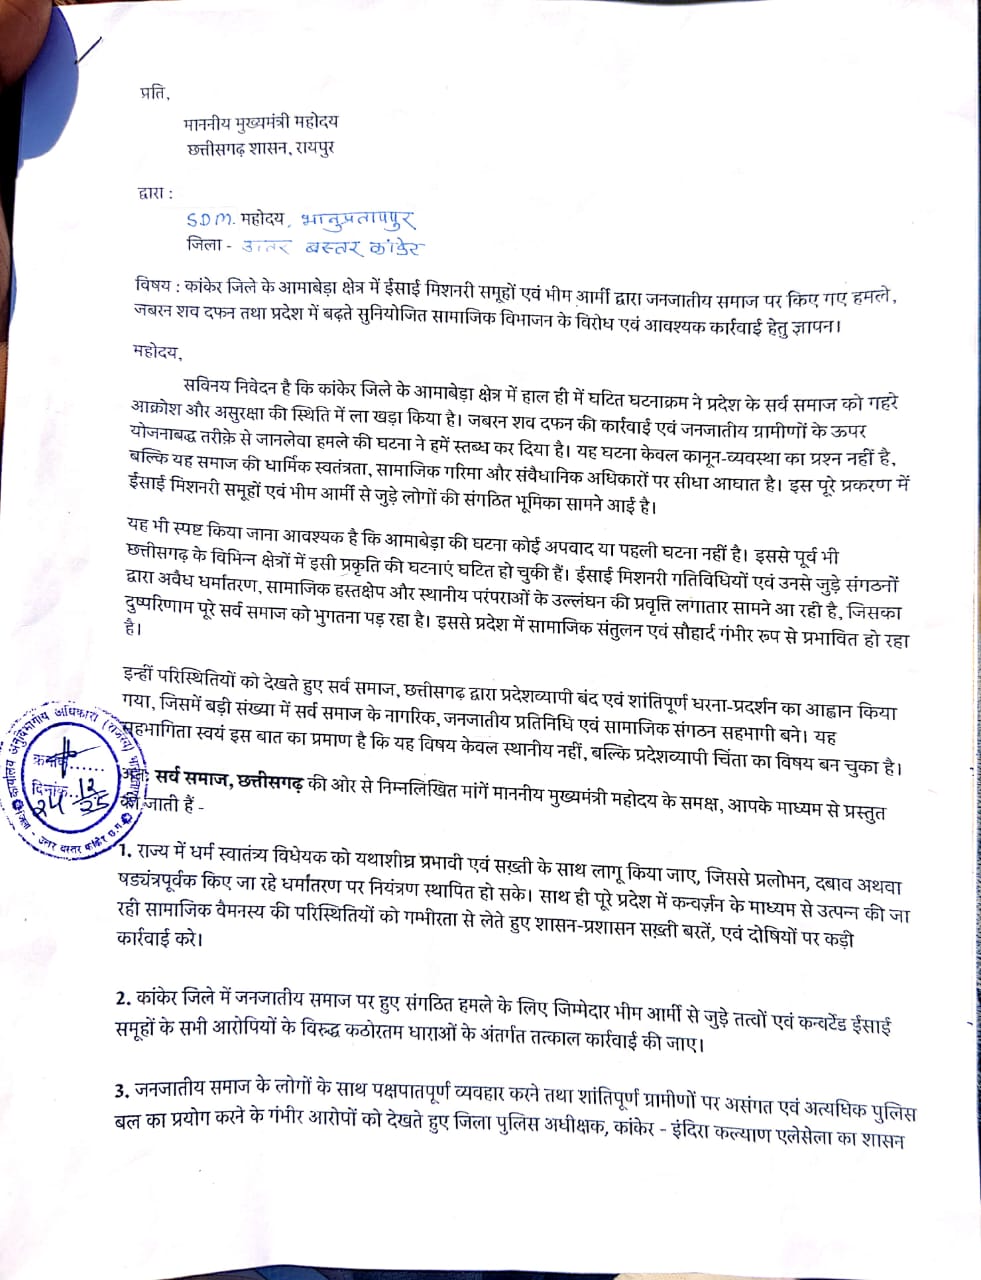 प्रति,
माननीय मुख्यमंत्री महोदय
छत्तीसगढ़ शासन, रायपुर
द्वारा :
S.D.M. महोदय, भानुप्रतापपुर
जिला - उत्तर बस्तर कांकेर
विषय : कांकेर जिले के आमाबेड़ा क्षेत्र में ईसाई मिशनरी समूहों एवं भीम आर्मी द्वारा जनजातीय समाज पर किए गए हमले,
जबरन शव दफन तथा प्रदेश में बढ़ते सुनियोजित सामाजिक विभाजन के विरोध एवं आवश्यक कार्रवाई हेतु ज्ञापन।
महोदय,
सविनय निवेदन है कि कांकेर जिले के आमाबेड़ा क्षेत्र में हाल ही में घटित घटनाक्रम ने प्रदेश के सर्व समाज को गहरे
आक्रोश और असुरक्षा की स्थिति में ला खड़ा किया है। जबरन शव दफन की कार्रवाई एवं जनजातीय ग्रामीणों के ऊपर
योजनाबद्ध तरीक़े से जानलेवा हमले की घटना ने हमें स्तब्ध कर दिया है। यह घटना केवल कानून-व्यवस्था का प्रश्न नहीं है,
बल्कि यह समाज की धार्मिक स्वतंत्रता, सामाजिक गरिमा और संवैधानिक अधिकारों पर सीधा आघात है। इस पूरे प्रकरण में
ईसाई मिशनरी समूहों एवं भीम आर्मी से जुड़े लोगों की संगठित भूमिका सामने आई है।
यह भी स्पष्ट किया जाना आवश्यक है कि आमाबेड़ा की घटना कोई अपवाद या पहली घटना नहीं है। इससे पूर्व भी
छत्तीसगढ़ के विभिन्न क्षेत्रों में इसी प्रकृति की घटनाएं घटित हो चुकी हैं। ईसाई मिशनरी गतिविधियों एवं उनसे जुड़े संगठनों
द्वारा अवैध धर्मांतरण, सामाजिक हस्तक्षेप और स्थानीय परंपराओं के उल्लंघन की प्रवृत्ति लगातार सामने आ रही है, जिसका
दुष्परिणाम पूरे सर्व समाज को भुगतना पड़ रहा है। इससे प्रदेश में सामाजिक संतुलन एवं सौहार्द गंभीर रूप से प्रभावित हो रहा
है।
इन्हीं परिस्थितियों को देखते हुए सर्व समाज, छत्तीसगढ़ द्वारा प्रदेशव्यापी बंद एवं शांतिपूर्ण धरना-प्रदर्शन का आह्वान किया
गया, जिसमें बड़ी संख्या में सर्व समाज के नागरिक, जनजातीय प्रतिनिधि एवं सामाजिक संगठन सहभागी बने। यह
सहभागिता स्वयं इस बात का प्रमाण है कि यह विषय केवल स्थानीय नहीं, बल्कि प्रदेशव्यापी चिंता का विषय बन चुका है।
अतः सर्व समाज, छत्तीसगढ़ की ओर से निम्नलिखित मांगें माननीय मुख्यमंत्री महोदय के समक्ष, आपके माध्यम से प्रस्तुत
की जाती हैं -
कार्यालय अनुविभागीय अधिकारी (राजस्व)
क्रमांक......
दिनांक. 24 12/25
जिला - उत्तर बस्तर कांकेर छ.ग.
1. राज्य में धर्म स्वातंत्र्य विधेयक को यथाशीघ्र प्रभावी एवं सख़्ती के साथ लागू किया जाए, जिससे प्रलोभन, दबाव अथवा
षड्यंत्रपूर्वक किए जा रहे धर्मांतरण पर नियंत्रण स्थापित हो सके। साथ ही पूरे प्रदेश में कन्वर्ज़न के माध्यम से उत्पन्न की जा
रही सामाजिक वैमनस्य की परिस्थितियों को गम्भीरता से लेते हुए शासन-प्रशासन सख़्ती बरतें, एवं दोषियों पर कड़ी
कार्रवाई करे।
2. कांकेर जिले में जनजातीय समाज पर हुए संगठित हमले के लिए जिम्मेदार भीम आर्मी से जुड़े तत्वों एवं कन्वर्टेड ईसाई
समूहों के सभी आरोपियों के विरुद्ध कठोरतम धाराओं के अंतर्गत तत्काल कार्रवाई की जाए।
3. जनजातीय समाज के लोगों के साथ पक्षपातपूर्ण व्यवहार करने तथा शांतिपूर्ण ग्रामीणों पर असंगत एवं अत्यधिक पुलिस
बल का प्रयोग करने के गंभीर आरोपों को देखते हुए जिला पुलिस अधीक्षक, कांकेर - इंदिरा कल्याण एलेसेला का शासन